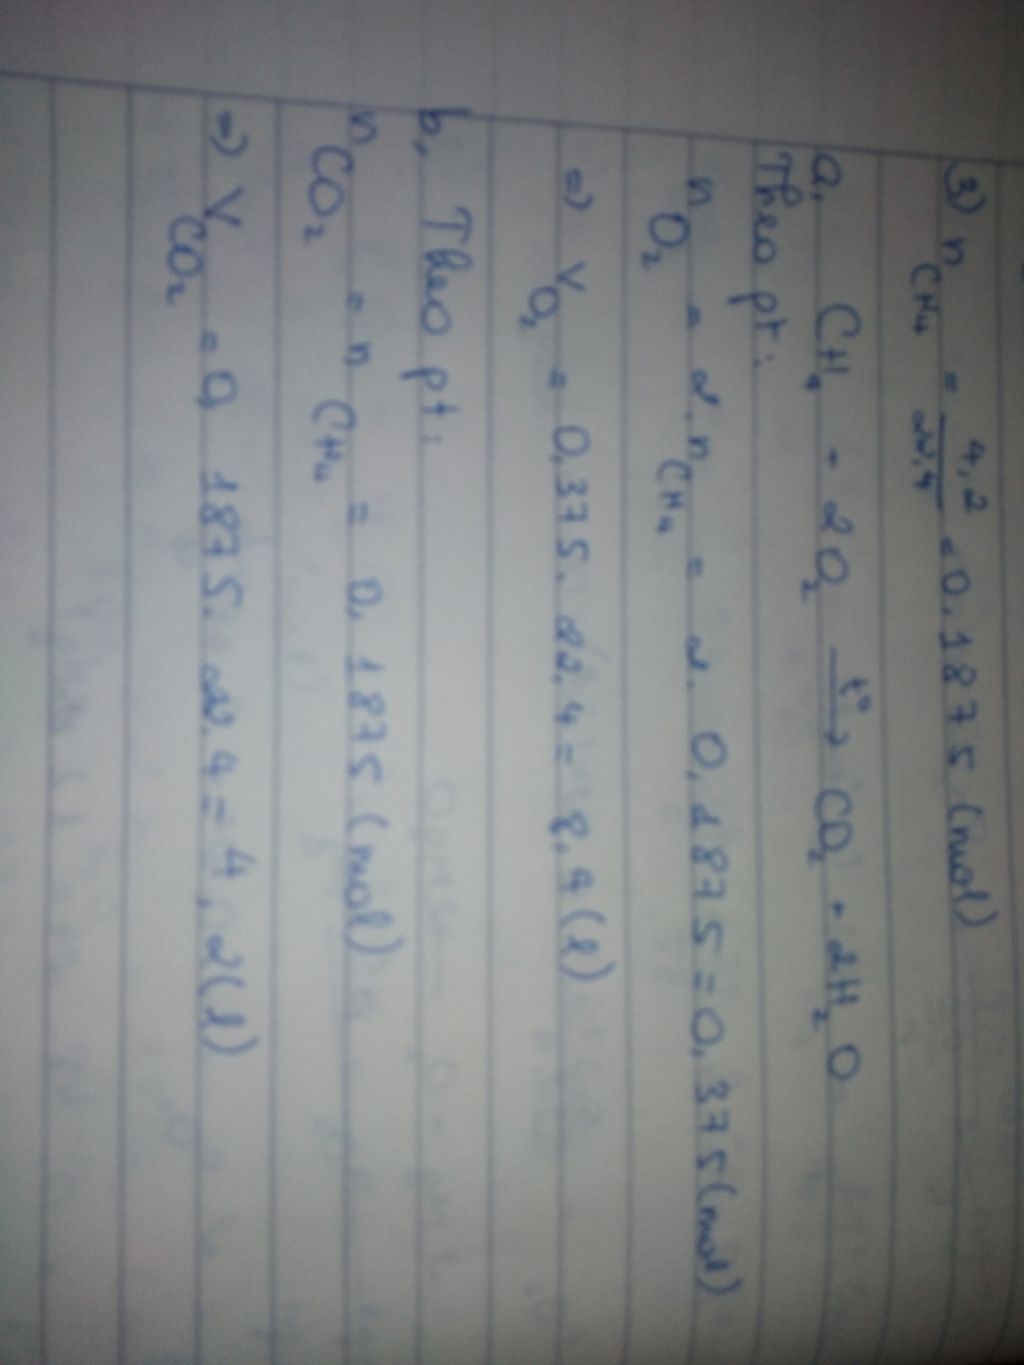 3) n CH4 = 4,2/22,4 = 0,1875 (mol)
a, CH4 + 2O2 t°→ CO2 + 2H2O
Theo pt:
n O2 = 2. n CH4 = 2. 0,1875 = 0,375 (mol)
=> V O2 = 0,375. 22,4 = 8,4 (l)
b, Theo pt:
n CO2 = n CH4 = 0,1875 (mol)
=> V CO2 = 0,1875. 22,4 = 4,2 (l)